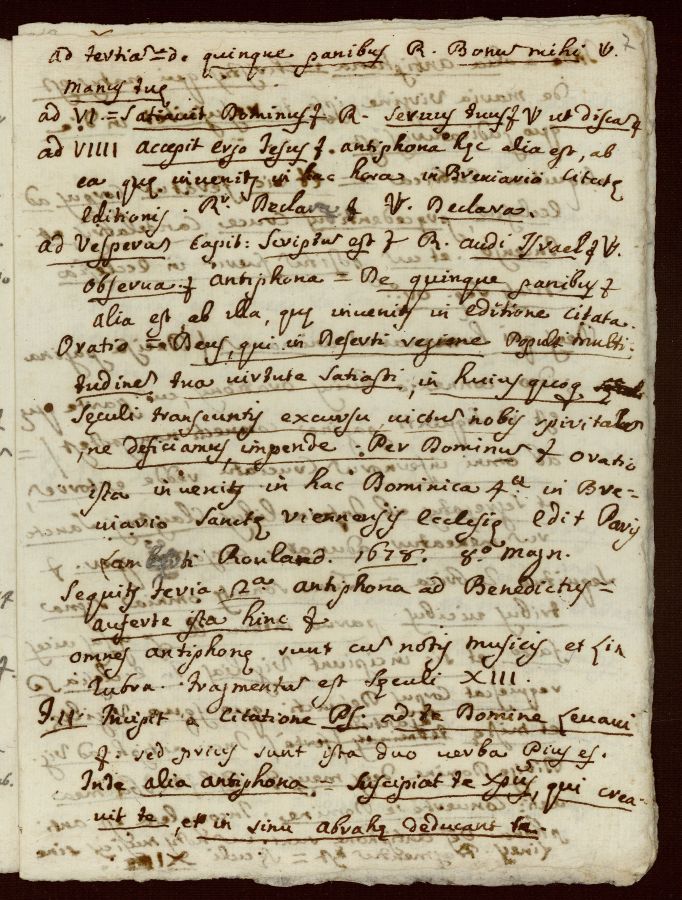 7
ad tertia = de quinque panibus R. Bonus mihi V.
manus tuę
ad VI = Satiavit Dominus & R. Servus tuus & V ut discā &
ad VIIII accepit ergo Jesus &. antiphona hęc alia est, ab
ea, quę invenitꝫ in hac hora in Breviario Citatę
Editionis. Rv. Declara & V. Declara.
ad Vesperas Capit: Scriptus est & R. audi Israel & V.
observa. & antiphona = De quinque panibus &
alia est, ab illa, quę invenitꝫ in editione citata.
Oratio = Deus, qui in Deserti regione Populi multi:
tudines tua virtute satiasti, in huius quoqꝫ
sęculi transeuntis excursu, victus nobis spiritales
, ne deficiamus, impende. Per Dominus & oratio
ista invenitꝫ in hac Dominica 4.a in Bre=
viario Sanctę Viennensis Ecclesię Edit Parisꝫ
Lamberti Rouland. 1678. 8.o Magn.
Sequitꝫ feria 2.a antiphona ad Benedictus =
auferte ista hinc &
omnes antiphonę sunt cuꝫ notis musicis et Lin
rubra. fragmentus est sęculi XIII.
J. II. Incipit a Citatione Ps. ad te Domine Levavi
&. sed prius sunt ista duo verba Pius es.
Inde alia antiphona = Suscipiat te Xpus, qui crea-
vit te, et in sinu abrahę deducant te.